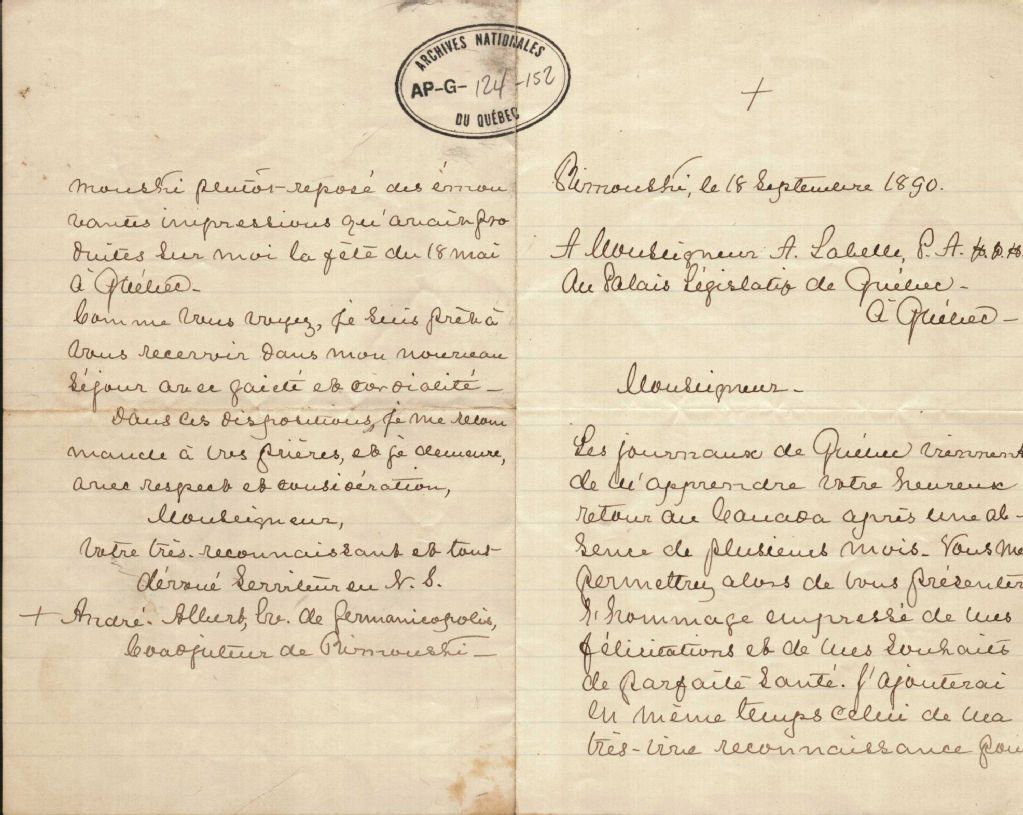 ARCHIVES NATIONALES
AP-G-124-152
DU QUÉBEC
mouski plutôt reposé des émou
vantes impressions qu'avait pro
duites sur moi la fête du 18 mai
à Québec-
Comme vous voyez, je suis prêt à
vous recevoir dans mon nouveau
séjour avec gaieté et cordialité-
Dans ces dispositions, je me recom
mande à vos prières, et je demeure,
avec respect et considération,
Monseigneur,
Votre très-reconnaissant et tout
dévoué Serviteur en N. S.
+ André. Albert, Ev. de Germanicopolis,
Coadjuteur de Rimouski-
+
Rimouski, le 18 Septembre 1890.
A Monseigneur A. Labelle, P. A.
Au Palais Législatif de Québec-
à Québec-
Monseigneur-
Les journaux de Québec viennent
de m'apprendre votre heureux
retour au Canada après une ab-
sence de plusieurs mois- Vous me
permettrez alors de vous présenter
l'hommage empressé de mes
félicitations et de mes souhaits
de parfaite santé. J'ajouterai
en même temps celui de ma
très-vive reconnaissance pour